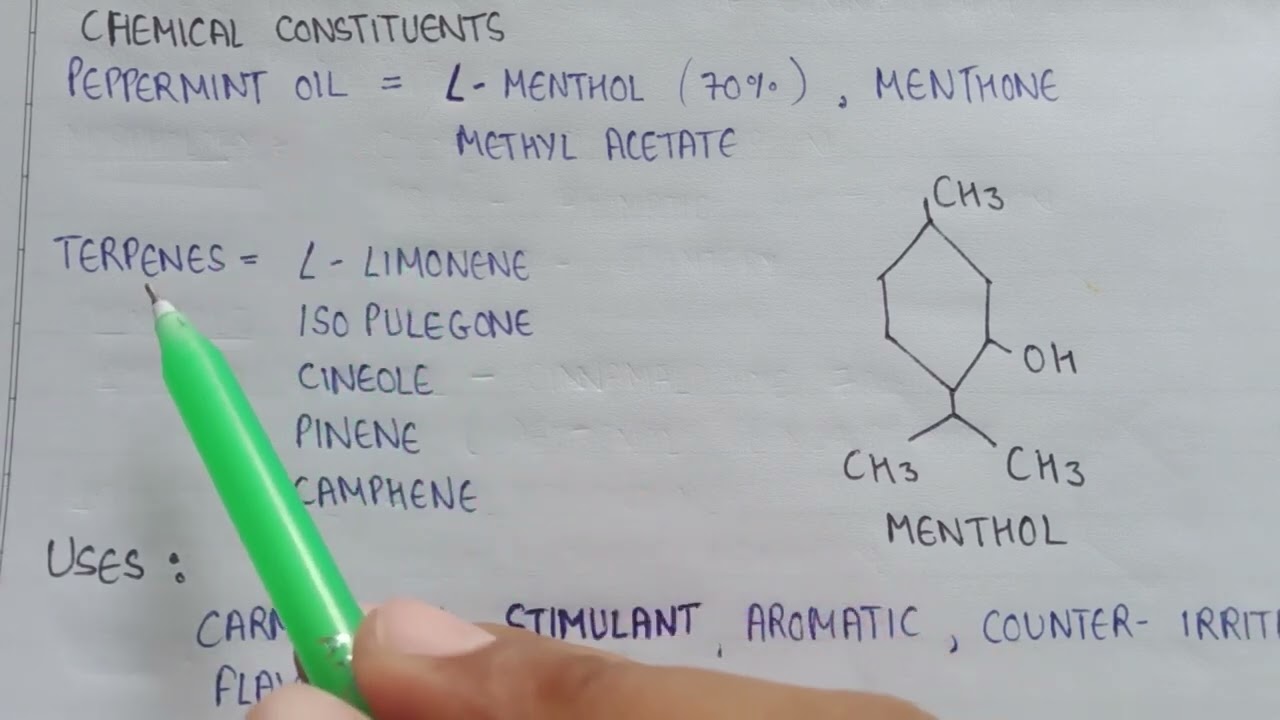 CHEMICAL CONSTITUENTS
PEPPERMINT OIL = L- MENTHOL (70%), MENTHONE
METHYL ACETATE
CH3
TERPENES = L - LIMONENE
ISO PULEGONE
OH
CINEOLE
PINENE
CH3 CH3
CAMPHENE
MENTHOL
USES :
STIMULANT, AROMATIC, COUNTER-